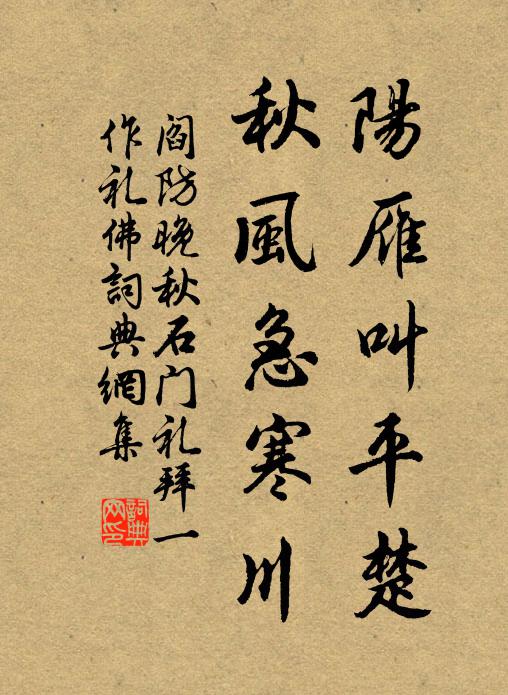 陽雁叫平楚
秋風急寒川
閻防晚秋石门礼拜一
作礼佛詞典網集
詞典网印